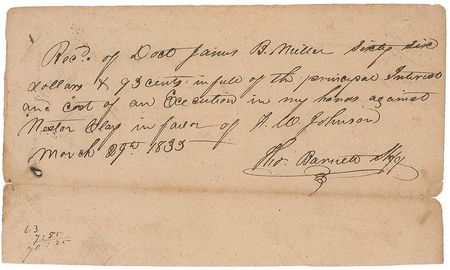 Recd. of Doct James B. Miller Sixty Six
dollars & 93 cents in full of the principal Interest
and cost of an Execution in my hands against
Nestor Clay in favor of F. W Johnson
March 29th 1835
Tho. Barnett Shff
63